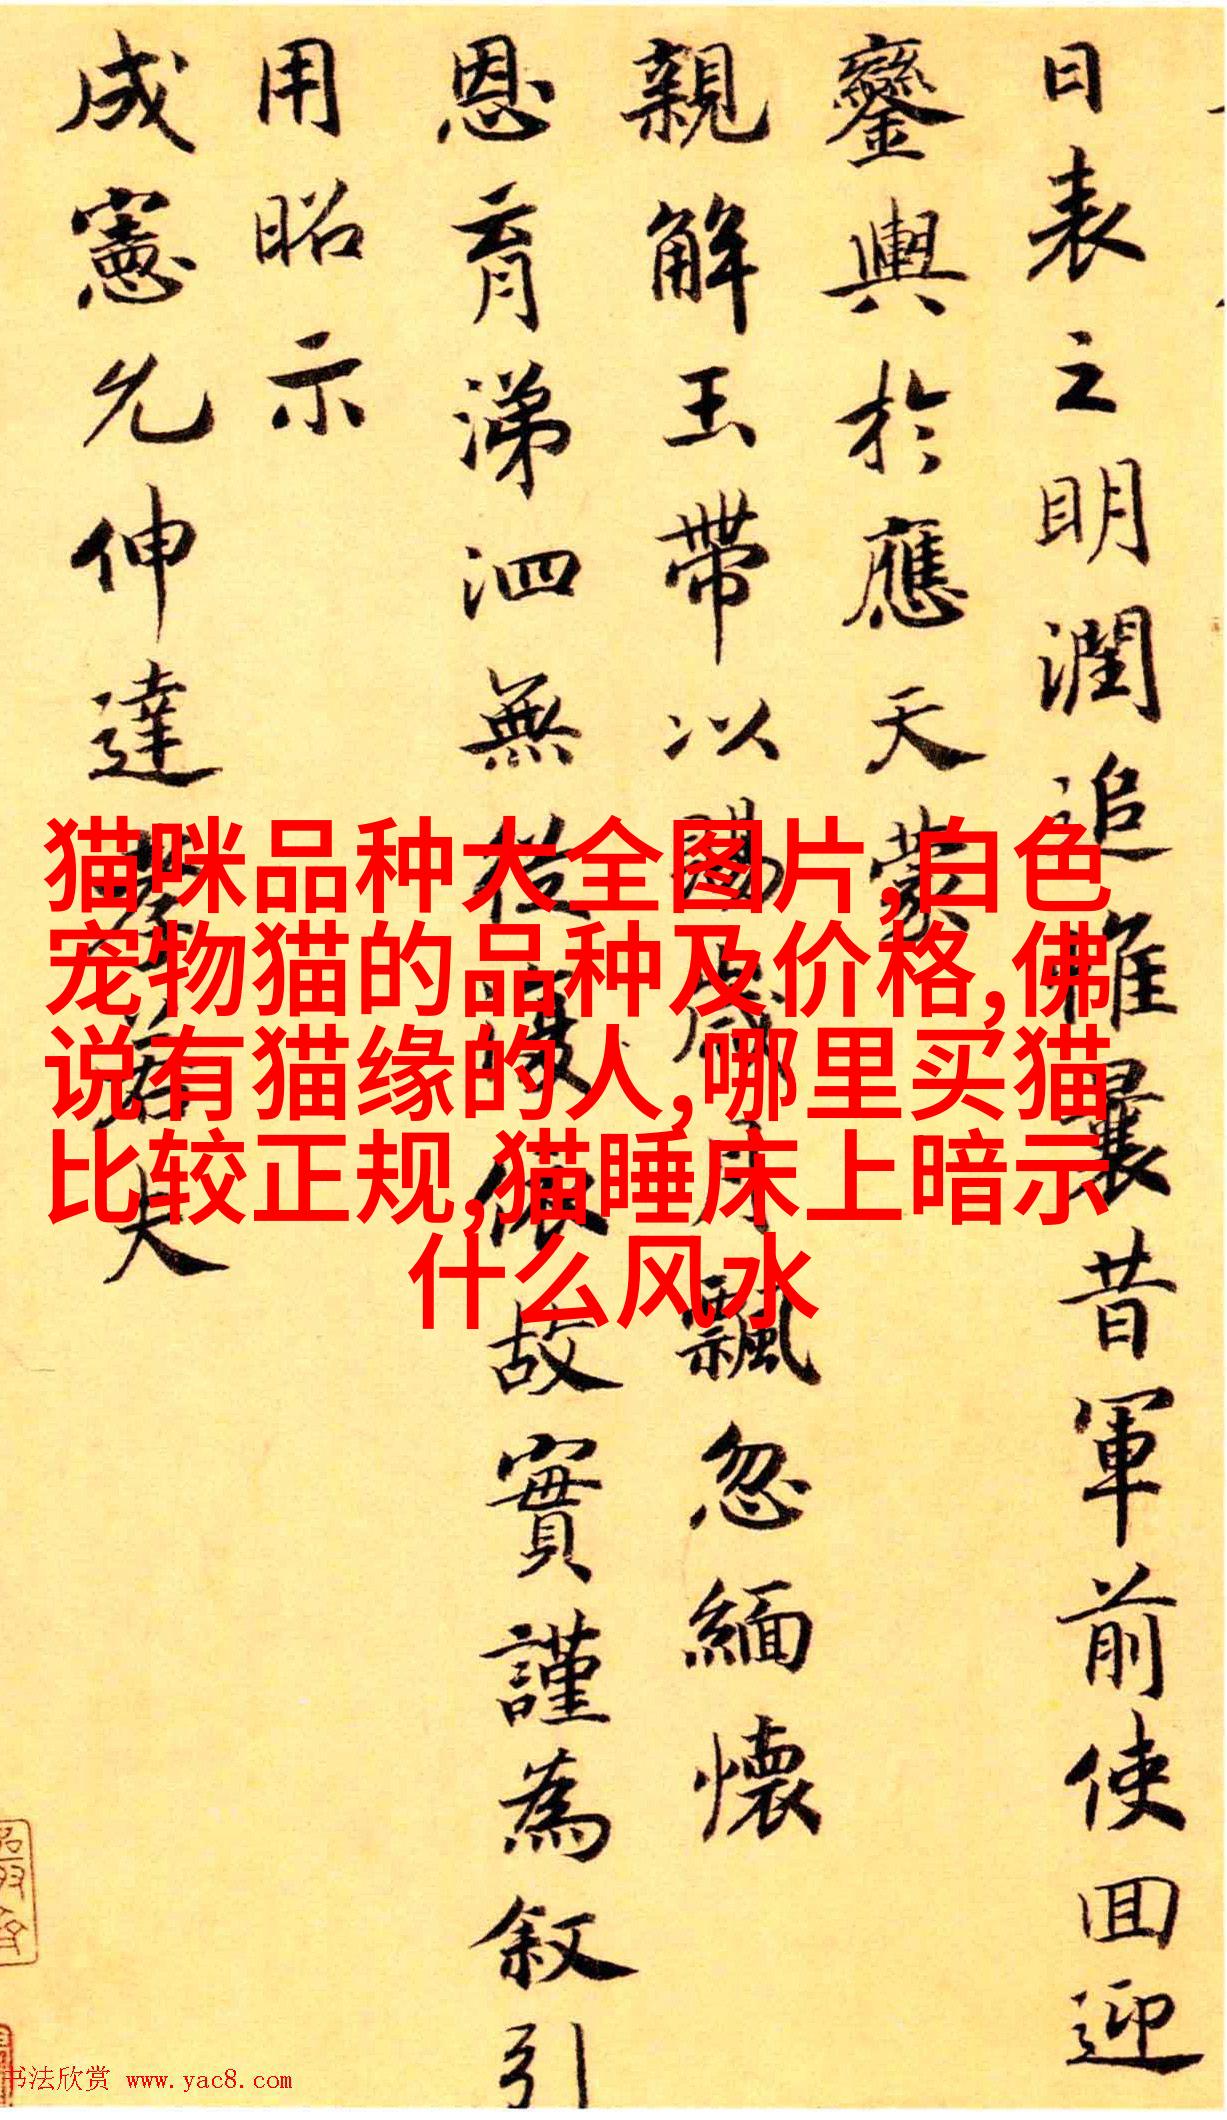 日表之明潤追惟曩昔軍前使回迎
鑾輿於應天蒙
親解玉帶以賜歲月飄忽緬懷
恩育涕泗無從謹依故實謹為叙引
用昭示
成憲允伸達孝若夫
猫咪品种大全图片,白色
宠物猫的品种及价格,佛
说有猫缘的人,哪里买猫
比较正规,猫睡床上暗示
什么风水
书法欣赏 www.yac8.com